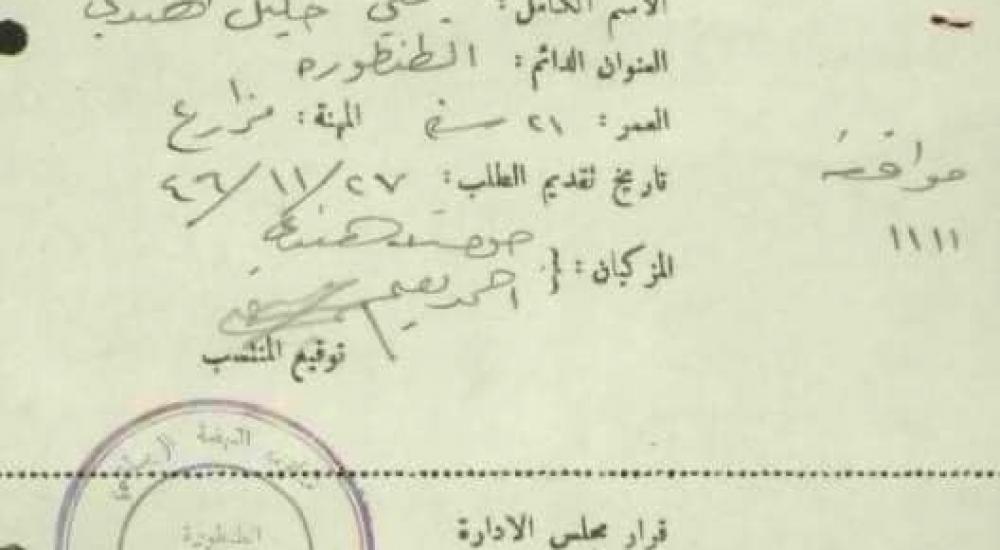 الاسم الكامل: خليل الهندي
العنوان الدائم: الطنطوره
العمر: ٢١ سنة المهنة: مزارع
تاريخ تقديم الطلب: ٢٧/١١/٤٦
موافقه
١١١١
المزكيان: {
احمد
توقيع المنتسب
النهضة
الطنطورة
قرار مجلس الادارة